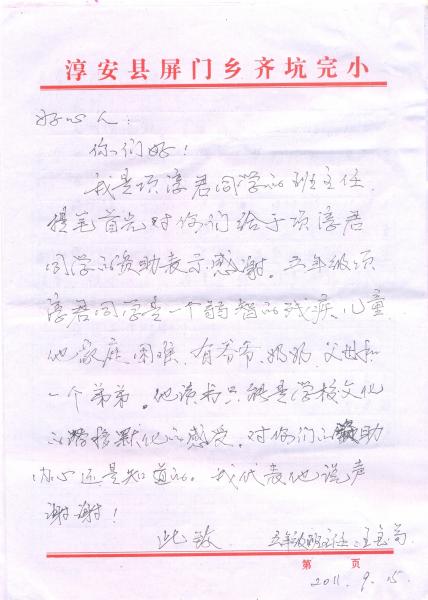 淳安县屏门乡齐坑完小
好心人：
你们好！
我是项淳君同学的班主任
提笔首先对你们给于项淳君
同学的资助表示感谢。五年级项
淳君同学是一个弱智的残疾儿童
他家庭困难，有爷爷、奶奶、父母和
一个弟弟。他读书只能是学校文化
的潜移默化的感受，对你们的助
内心还是知道的。我代表他说声
谢谢！
此致 五年级班主任：王
第 页
2011.9.15